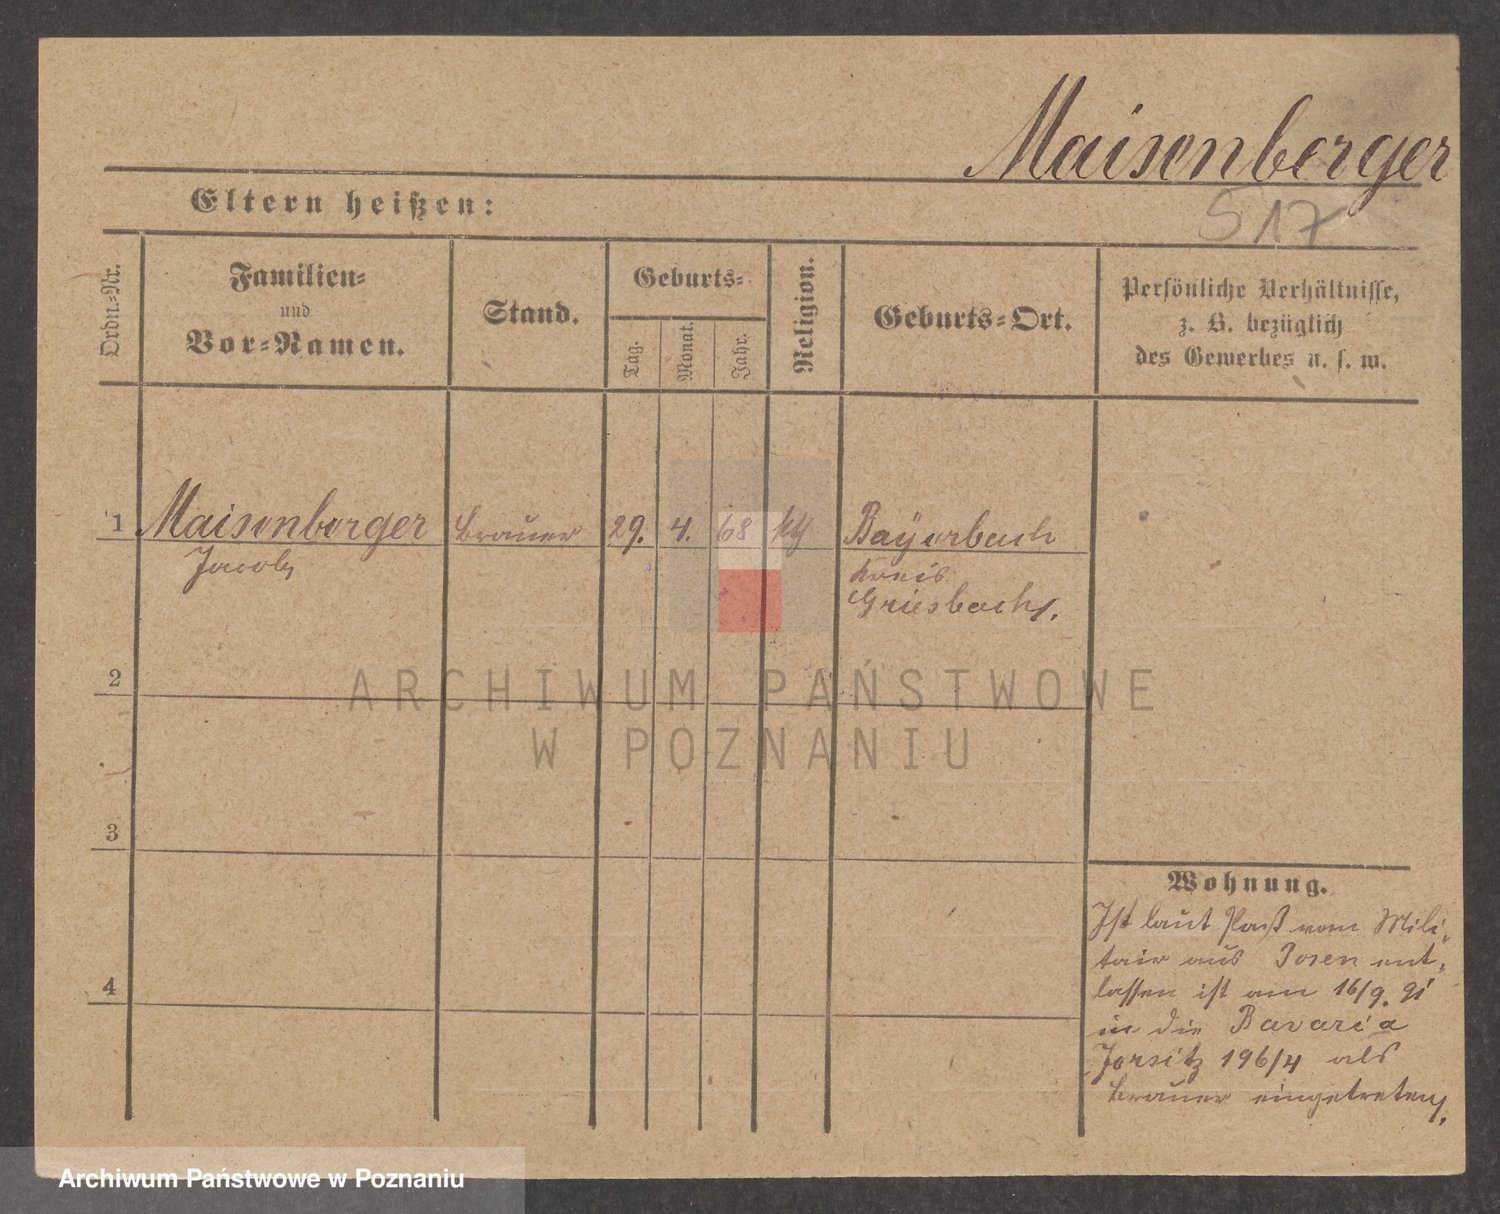 Maisenberger
Eltern heißen:
517
Ordn.=Nr.
Familien=
und
Vor=Namen.
Stand.
Geburts=
Tag.
Monat.
Jahr.
Religion.
Geburts=Ort.
Persönliche Verhältnisse,
z. B. bezüglich
des Gewerbes u. s. w.
1 Maisenberger Brauer 29. 4. 68 kth Bayerbach
Jacob Kreis
Griesbach.
2
3
4
ARCHIWUM PAŃSTWOWE
W POZNANIU
Wohnung.
Ist laut Paß vom Mili-
tair aus Posen ent-
lassen ist am 16/9. 91
in die Bavaria
Jersitz 196/4 als
Brauer eingetreten.
Archiwum Państwowe w Poznaniu